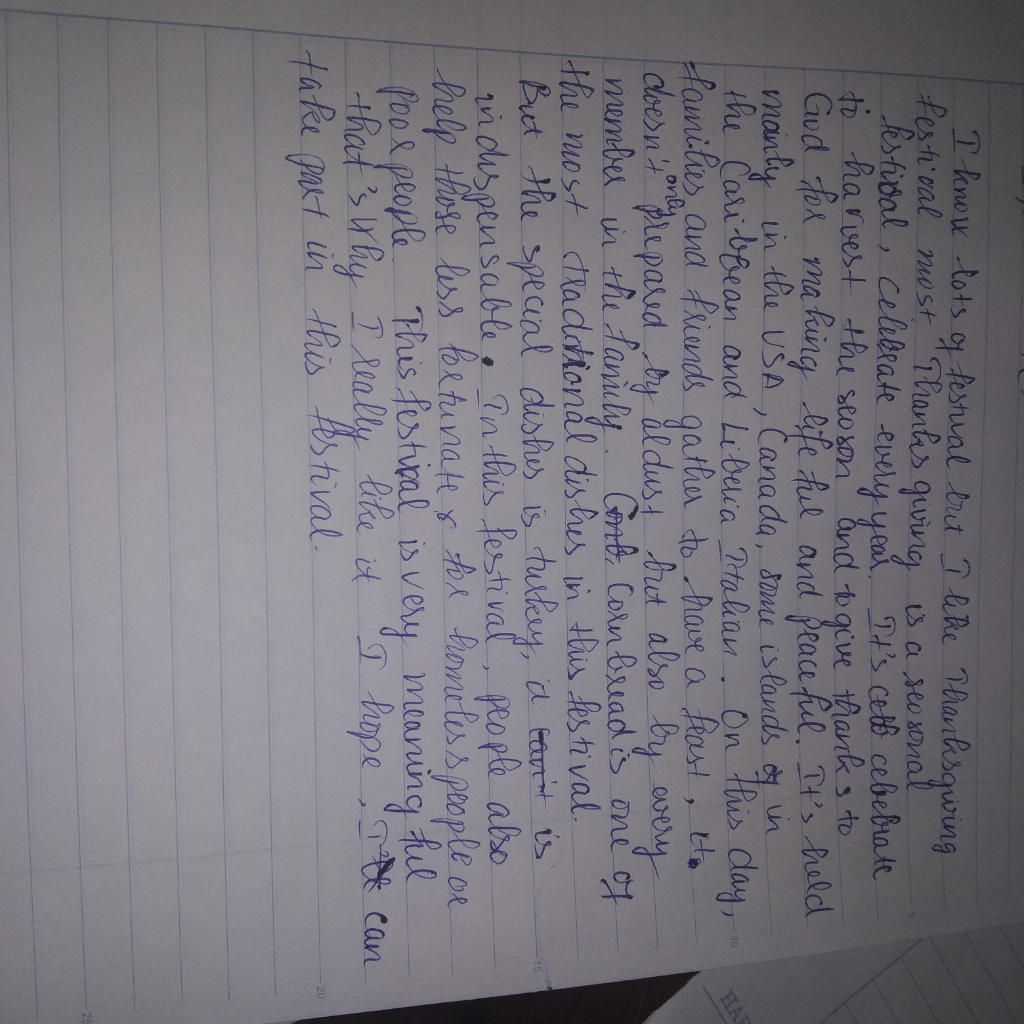 I know lots of festival but I like Thanksgiving
festival most. Thanksgiving is a seosonal
festival, celebrate every year. It's ceb cebebrate
to harvest the seoson and to give thanks to
God for making life ful and peaceful. It's held
mainly in the USA, Canada, some islands of in
the Caribbean and Liberia Italian. On this day,
families and friends gather to have a feast, it
doesn't only prepared by aldust but also by every
member in the family. Corn bread is one of
the most traditional dishes in this festival.
But the special dishes is turkey, it can't is
indispensable. In this festival, people also
help those less fortunate or for homeless people or
poor people. This festival is very meaning ful
that's why I really like it I hope, I can
take part in this festival.
HAP
10
15
20
25